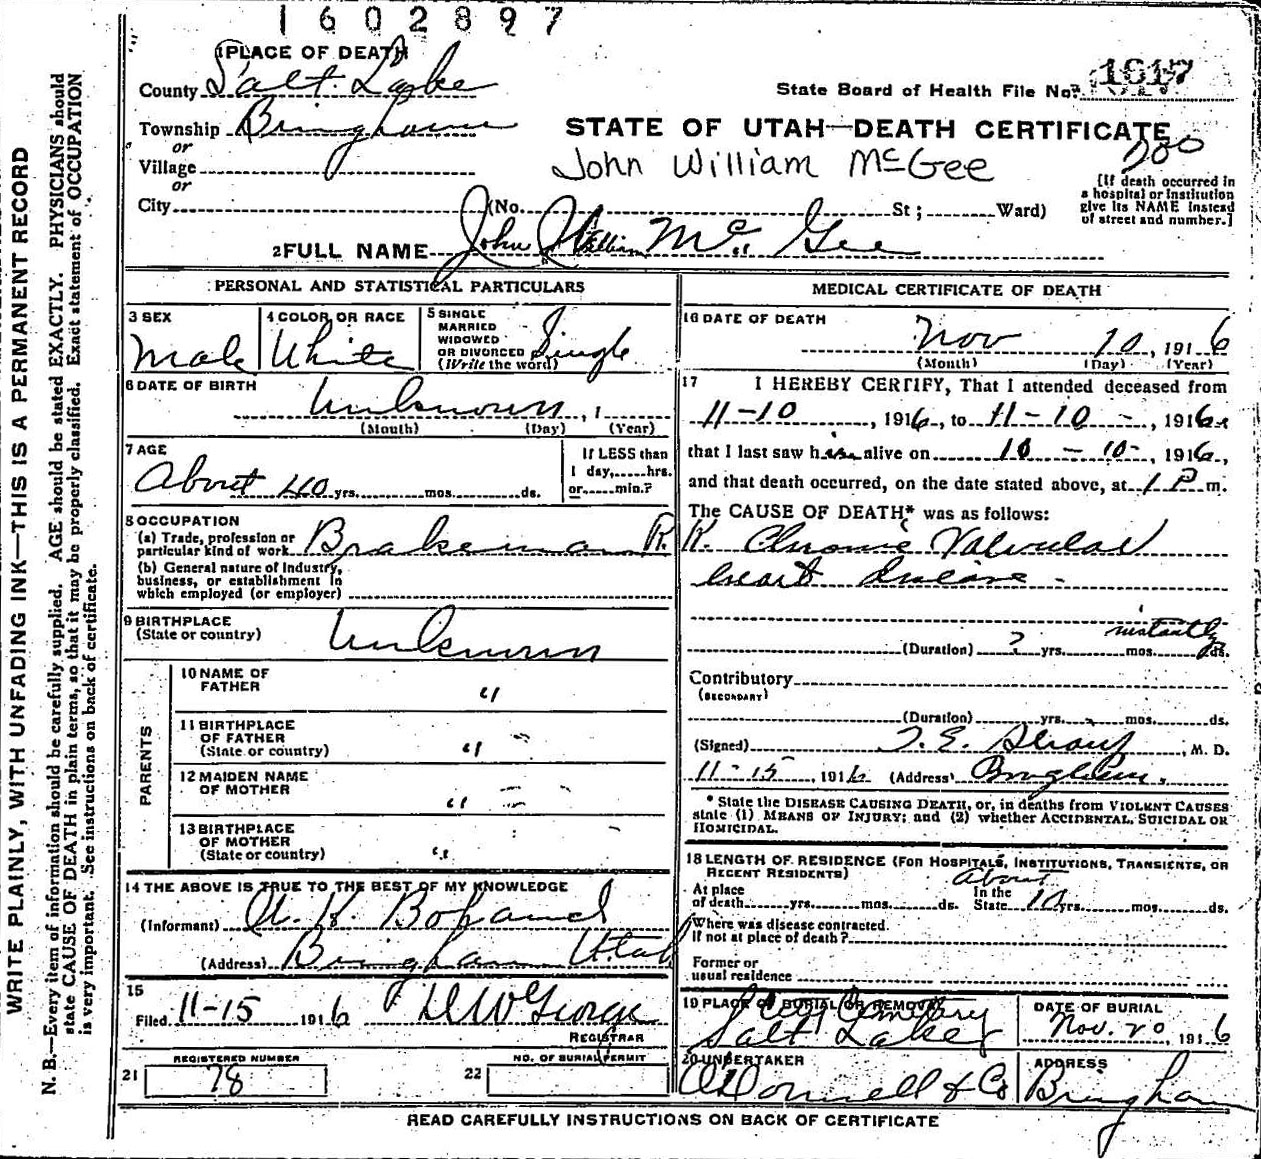 1602897
1 PLACE OF DEATH
County Salt Lake
State Board of Health File No. 1617
Township Bingham
STATE OF UTAH—DEATH CERTIFICATE
or
Village
John William McGee
200
or
[If death occurred in
a hospital or institution
give its NAME instead
of street and number.]
City (No. St; Ward)
2 FULL NAME John William Mc Gee
PERSONAL AND STATISTICAL PARTICULARS
3 SEX
Male
4 COLOR OR RACE
White
5 SINGLE
MARRIED
WIDOWED
OR DIVORCED
(Write the word)
Single
6 DATE OF BIRTH
Unknown, 1
(Month) (Day) (Year)
7 AGE
About 40 yrs. mos. ds.
If LESS than
1 day, hrs.
or min.?
8 OCCUPATION
(a) Trade, profession or
particular kind of work Brakeman R.R.
(b) General nature of industry,
business, or establishment in
which employed (or employer)
9 BIRTHPLACE
(State or country)
Unknown
PARENTS
10 NAME OF
FATHER
"
11 BIRTHPLACE
OF FATHER
(State or country)
"
12 MAIDEN NAME
OF MOTHER
"
13 BIRTHPLACE
OF MOTHER
(State or country)
"
14 THE ABOVE IS TRUE TO THE BEST OF MY KNOWLEDGE
(Informant)
(Address) Bingham Utah
15
Filed 11-15 1916 George
REGISTRAR
REGISTERED NUMBER
21 78
NO. OF BURIAL PERMIT
22
MEDICAL CERTIFICATE OF DEATH
16 DATE OF DEATH
Nov 10, 1916
(Month) (Day) (Year)
17 I HEREBY CERTIFY, That I attended deceased from
11-10, 1916, to 11-10-, 1916,
that I last saw him alive on 10-10-, 1916,
and that death occurred, on the date stated above, at 1 P m.
The CAUSE OF DEATH* was as follows:
Chronic Valvular
heart disease -
instantly
(Duration) ? yrs. mos. ds.
Contributory
(SECONDARY)
(Duration) yrs. mos. ds.
(Signed) , M. D.
11-15, 1916 (Address) Bingham.
* State the DISEASE CAUSING DEATH, or, in deaths from VIOLENT CAUSES
state (1) MEANS OF INJURY; and (2) whether ACCIDENTAL, SUICIDAL OR
HOMICIDAL.
18 LENGTH OF RESIDENCE (FOR HOSPITALS, INSTITUTIONS, TRANSIENTS, OR
RECENT RESIDENTS)
About
At place of death yrs. mos. ds. In the State 10 yrs. mos. ds.
Where was disease contracted.
If not at place of death?
Former or
usual residence
19 PLACE OF BURIAL OR REMOVAL
City Cemetery
Salt Lake
DATE OF BURIAL
Nov. 20 1916
20 UNDERTAKER
O'Donnell & Co
ADDRESS
Bingham
READ CAREFULLY INSTRUCTIONS ON BACK OF CERTIFICATE
WRITE PLAINLY, WITH UNFADING INK—THIS IS A PERMANENT RECORD
N. B.—Every item of information should be carefully supplied. AGE should be stated EXACTLY. PHYSICIANS should
state CAUSE OF DEATH in plain terms, so that it may be properly classified. Exact statement of OCCUPATION
is very important. See instructions on back of certificate.